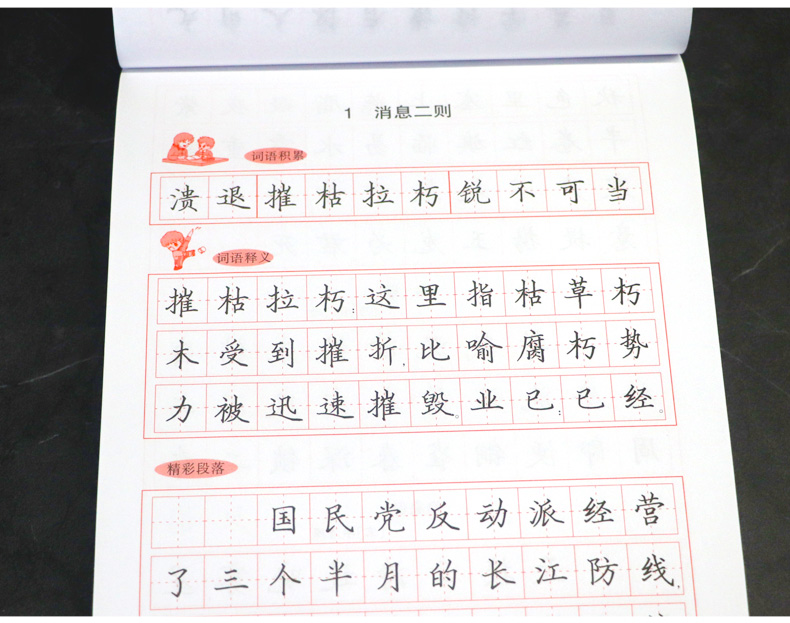 1 消息二则
词语积累
溃退摧枯拉朽锐不可当
词语释义
摧枯拉朽:这里指枯草朽
木受到摧折,比喻腐朽势
力被迅速摧毁。业已:已经。
精彩段落
国民党反动派经营
了三个半月的长江防线,